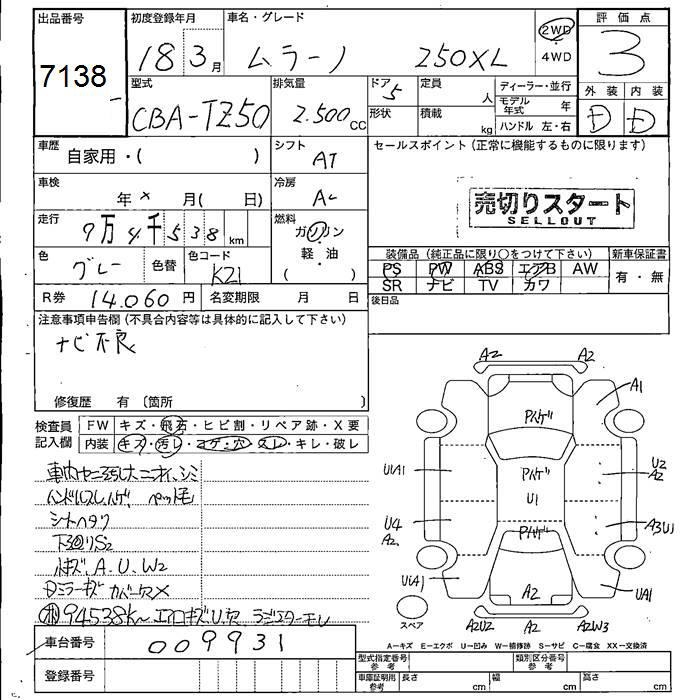 出品番号
7138
初度登録年月
18 3月
車名・グレード
ムラーノ 250XL
2WD
4WD
評価点
3
型式
CBA-TZ50
排気量
2.500cc
ドア 5
形状
定員
人
積載
kg
ディーラー・並行
モデル年式 年
ハンドル 左・右
外装 内装
D D
車歴
自家用・( )
シフト
AT
セールスポイント(正常に機能するものに限ります)
車検
年 × 月( 日)
冷房
AC
売切りスタート
SELLOUT
走行
9万4千538km
燃料
ガソリン
・
軽・油
( )
色
グレー
色替
色コード
K21
装備品(純正品に限り○をつけて下さい)
新車保証書
PS PW ABS エアB AW
SR ナビ TV カワ
有・無
R券 14.060円
名変期限 月 日
後日品
注意事項申告欄(不具合内容等は具体的に記入して下さい)
ナビ不良
修復歴 有 〔箇所 〕
検査員記入欄
FW キズ・飛石・ヒビ割・リペア跡・X要
内装 キズ・汚レ・コゲ・穴・スレ・キレ・破レ
車内ヤニ汚レ大ニオイ、シミ
ハンドルスレ,ハゲ、ペット毛
シートヘタリ
下回りS2
キズ、A、U、W2
Dミラーキズ カバー欠×
94538k エアロキズU、穴 ラジエターモレ
車台番号
009931
登録番号
A2 A2
A1
Pハゲ
U1A1
Pハゲ
U1
U2
A2
U4
A2
Pハゲ
A3U1
U1A1
A2
UA1
スペア
A2U2 A2 A2W3
A-キズ E-エクボ U-凹み W-補修跡 S-サビ C-腐食 XX-交換済
型式指定番号 参考
類別区分番号 参考
車庫証明用 参考
長さ cm
幅 cm
高さ cm